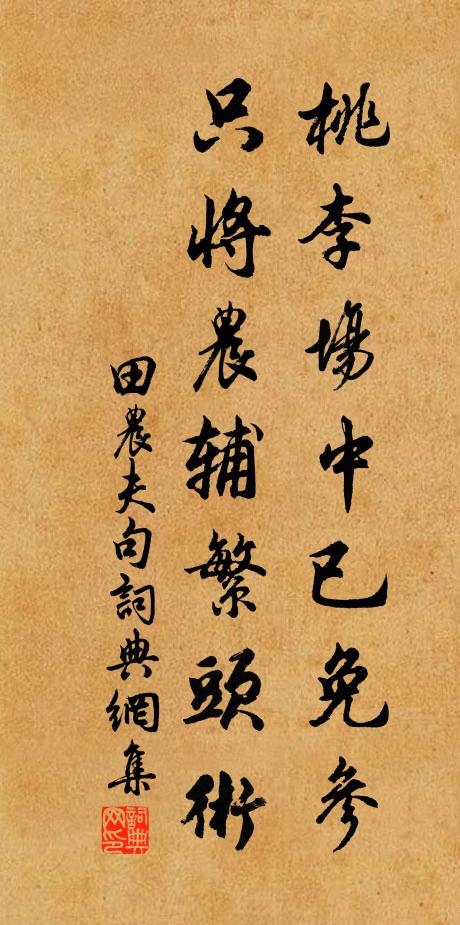 桃李場中已免參
只將農辅繁頭術
田農夫句詞典網集
詞典网印